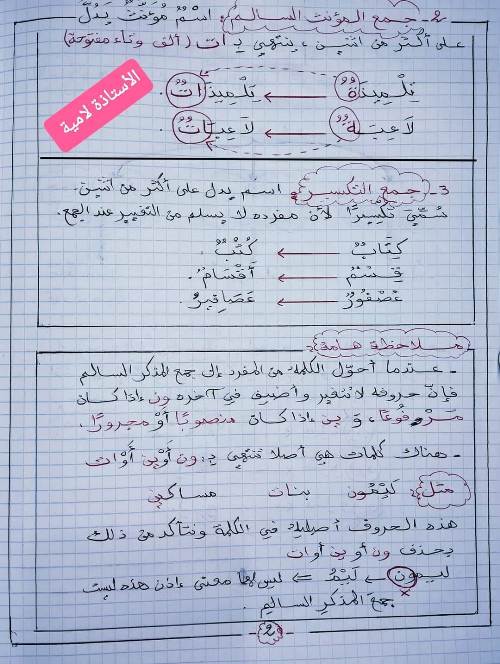 2- جمع المؤنث السالم: اسْمٌ مُؤَنَّثٌ يَدُلُّ
على أكثر من اثنين، ينتهي بـ ات (ألف وتاء مفتوحة)
تِلْمِيذَةٌ ← تِلْمِيذَاتٌ.
لاَعِبَةٌ ← لاَعِبَاتٌ.
الأستاذة لامية
3- جمع التكسير: اسم يدل على أكثر من اثنين.
سُمِّيَ تَكْسِيرًا لأن مفرده لا يسلم من التغيير عند الجمع.
كِتَابٌ ← كُتُبٌ.
قِسْمٌ ← أَقْسَامٌ.
عُصْفُورٌ ← عَصَافِيرٌ.
ملاحظة هامة:
- عندما أحوّل الكلمة من المفرد إلى جمع المذكر السالم
فإنّ حروفه لا تتغير وأضيف في آخره ون إذا كان
مَرْفُوعًا، وَ ين إذا كان منصوبًا أوْ مجرورًا.
- هناك كلمات هي أصلا تنتهي بـ: ون أَوْ ين أَوْ ات
مثل: لَيْمُون بنات مساكين
هذه الحروف أصلية في الكلمة ونتأكد من ذلك
بحذف ون أو ين أو ات
ليمون ← لَيْمُ ⇐ ليس لها معنى إذن هذه ليست
جمعَ المذكر السالم.
2